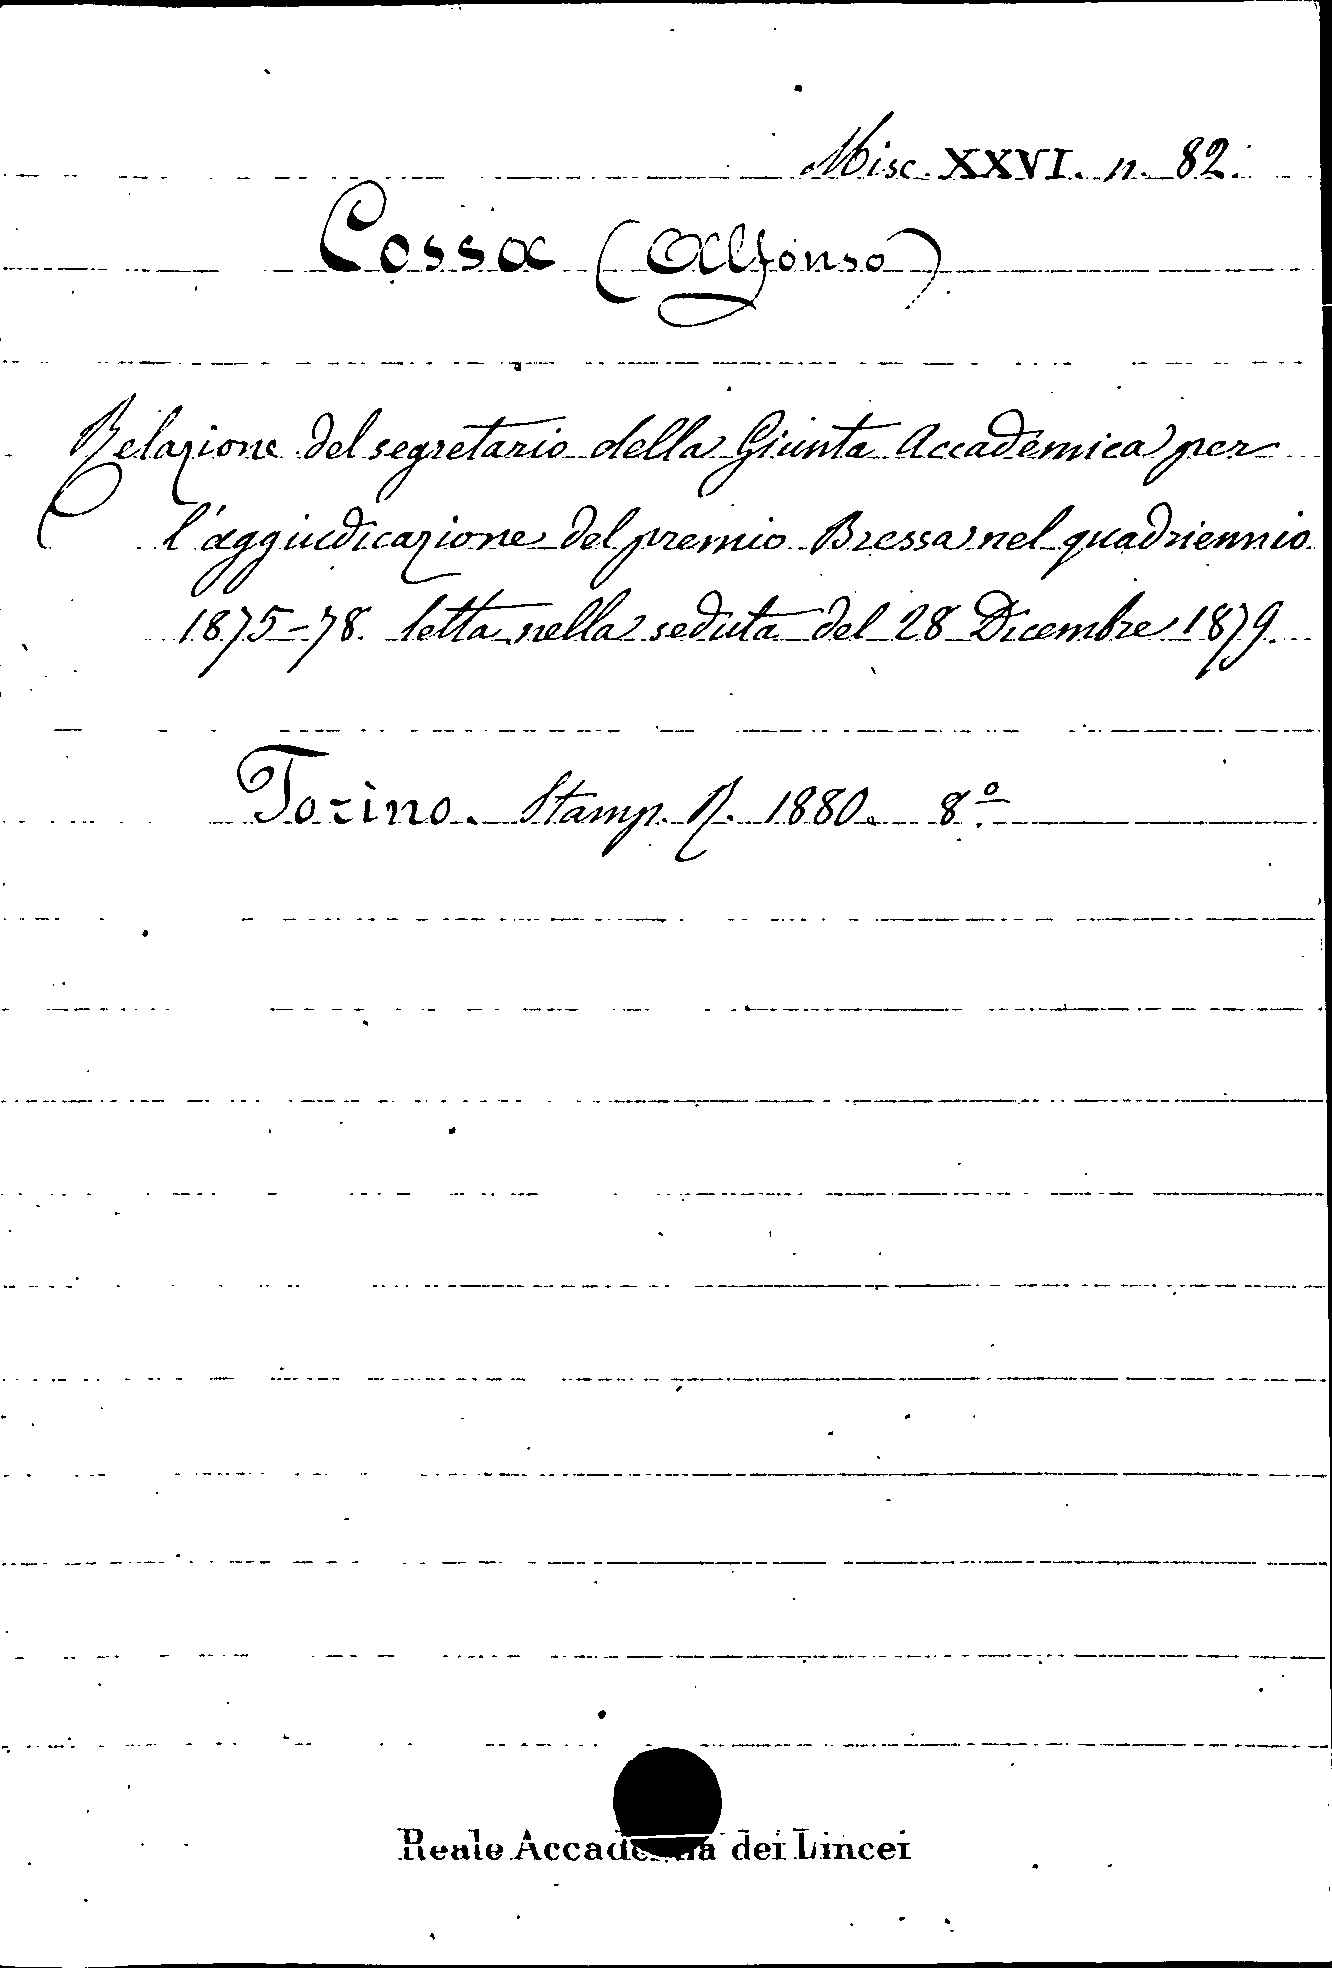 Misc. XXVI. n. 82.
Cossa (Alfonso)
Relazione del segretario della Giunta Accademica per
l'aggiudicazione del premio Bressa nel quadriennio
1875-78. letta nella seduta del 28 Dicembre 1879.
Torino. Stamp. R. 1880. 8º
Reale Accademia dei Lincei